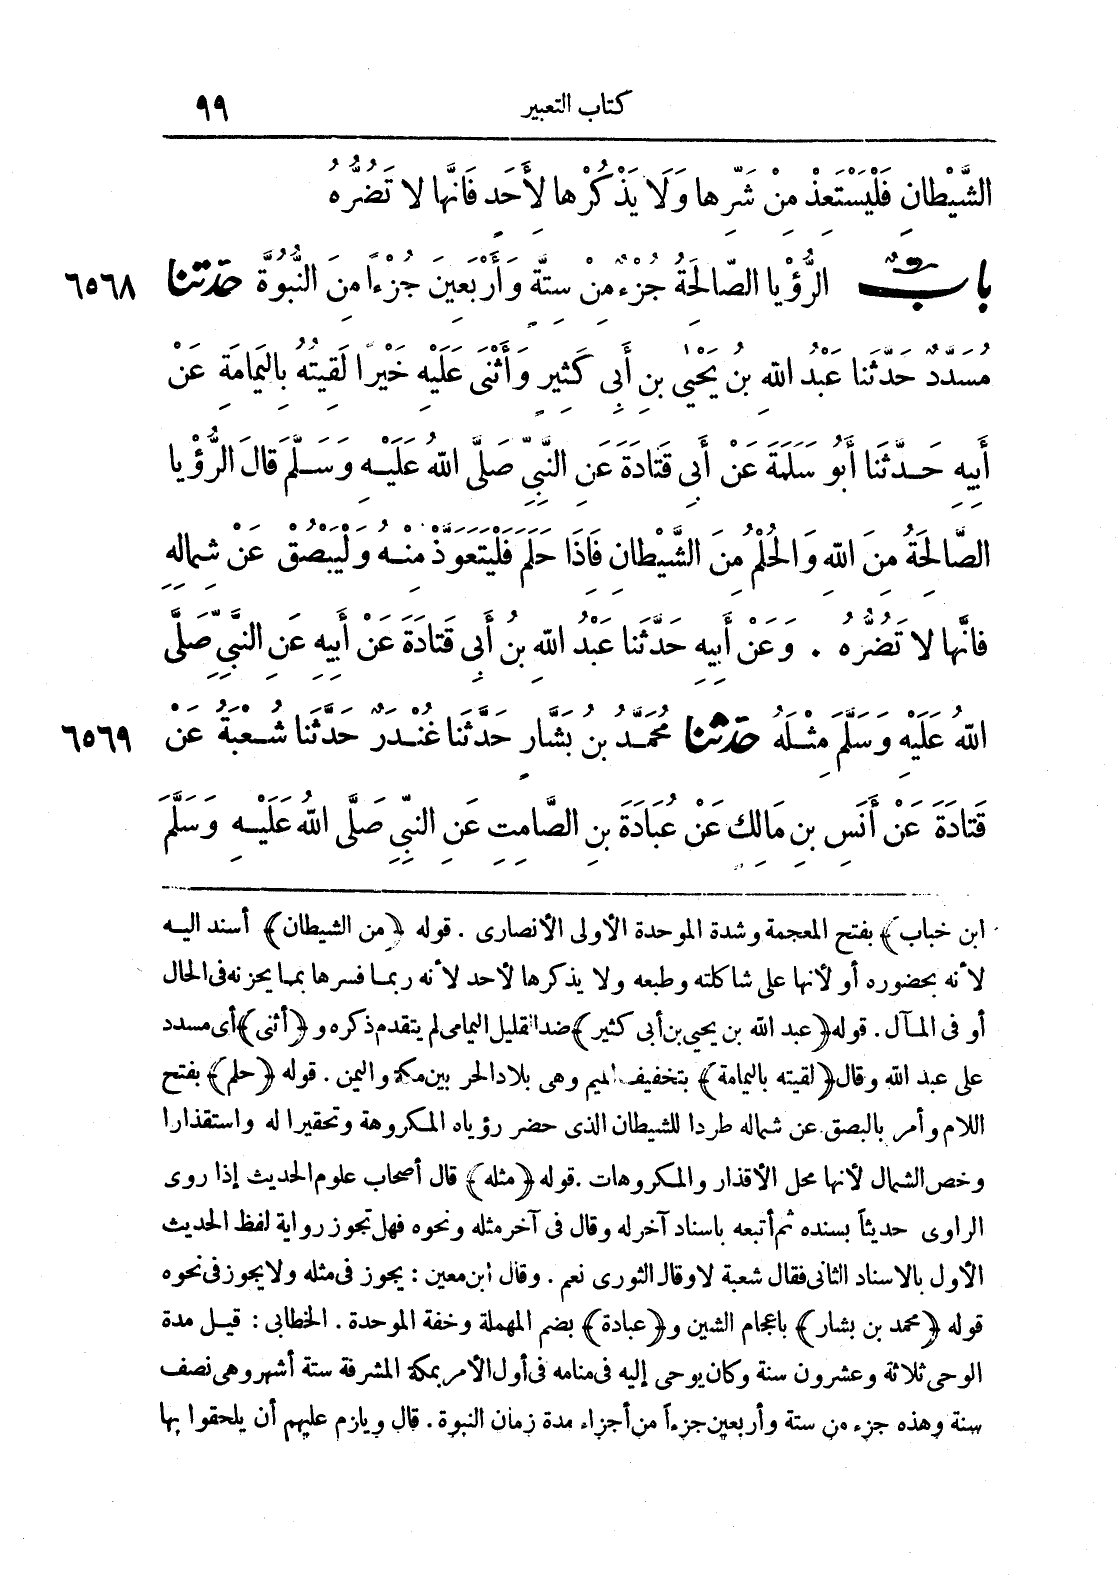 كتاب التعبير ٩٩
الشَّيْطانِ فَلْيَسْتَعِذْ مِنْ شَرِّها وَلَا يَذْكُرْها لِأَحَدٍ فَانَّها لا تَضُرُّهُ
بابٌ الرُّؤْيا الصَّالِحَةُ جُزْءٌ مِنْ سِتَّةٍ وَأَرْبَعِينَ جُزْءًا مِنَ النُّبُوَّةِ حَدَّثَنَا ٦٥٦٨
مُسَدَّدٌ حَدَّثَنا عَبْدُ اللهِ بنُ يَحْيَى بنِ أَبِى كَثِيرٍ وَأَثْنَى عَلَيْهِ خَيْرًا لَقِيتُهُ بِالْيَمَامَةِ عَنْ
أَبِيهِ حَدَّثَنَا أَبُو سَلَمَةَ عَنْ أَبِى قَتادَةَ عَنِ النَّبِيِّ صَلَّى اللهُ عَلَيْهِ وَسَلَّمَ قالَ الرُّؤْيا
الصَّالِحَةُ مِنَ اللهِ وَالحُلْمُ مِنَ الشَّيْطانِ فَاذَا حَلَمَ فَلْيَتَعَوَّذْ مِنْهُ وَلْيَبْصُقْ عَنْ شِمالِهِ
فانَّها لا تَضُرُّهُ . وَعَنْ أَبِيهِ حَدَّثَنا عَبْدُ اللهِ بنُ أَبِى قَتادَةَ عَنْ أَبِيهِ عَنِ النَّبِيِّ صَلَّى
اللهُ عَلَيْهِ وَسَلَّمَ مِثْلَهُ حَدَّثَنا مُحَمَّدُ بنُ بَشَّارٍ حَدَّثَنا غُنْدَرٌ حَدَّثَنا شُعْبَةُ عَنْ ٦٥٦٩
قَتادَةَ عَنْ أَنَسِ بنِ مَالِكٍ عَنْ عُبَادَةَ بنِ الصَّامِتِ عَنِ النَّبِيِّ صَلَّى اللهُ عَلَيْهِ وَسَلَّمَ
ابن خباب﴾ بفتح المعجمة وشدة الموحدة الأولى الأنصارى . قوله ﴿من الشيطان﴾ أسند اليه
لأنه بحضوره أو لأنها على شاكلته وطبعه ولا يذكرها لأحد لأنه ربما فسرها بما يحزنه فى الحال
أو فى المآل . قوله ﴿عبد الله بن يحيى بن أبى كثير﴾ ضد القليل اليمامى لم يتقدم ذكره و ﴿أثنى﴾ أى مسدد
على عبد الله وقال ﴿لقيته باليمامة﴾ بتخفيف الميم وهى بلاد الحر بين مكة واليمن . قوله ﴿حلم﴾ بفتح
اللام وأمر بالبصق عن شماله طردا للشيطان الذى حضر رؤياه المكروهة وتحقيرا له واستقذارا
وخص الشمال لأنها محل الأقذار والمكروهات . قوله ﴿مثله﴾ قال أصحاب علوم الحديث إذا روى
الراوى حديثاً بسنده ثم أتبعه باسناد آخر له وقال فى آخر مثله ونحوه فهل تجوز رواية لفظ الحديث
الأول بالاسناد الثانى فقال شعبة لا وقال الثورى نعم . وقال ابن معين : يجوز فى مثله ولا يجوز فى نحوه
قوله ﴿محمد بن بشار﴾ باعجام الشين و ﴿عبادة﴾ بضم المهملة وخفة الموحدة . الخطابى : قيل مدة
الوحى ثلاثة وعشرون سنة وكان يوحى إليه فى منامه فى أول الأمر بمكة المشرفة ستة أشهر وهى نصف
سنة وهذه جزء من ستة وأربعين جزءاً من أجزاء مدة زمان النبوة . قال ويلزم عليهم أن يلحقوا بها